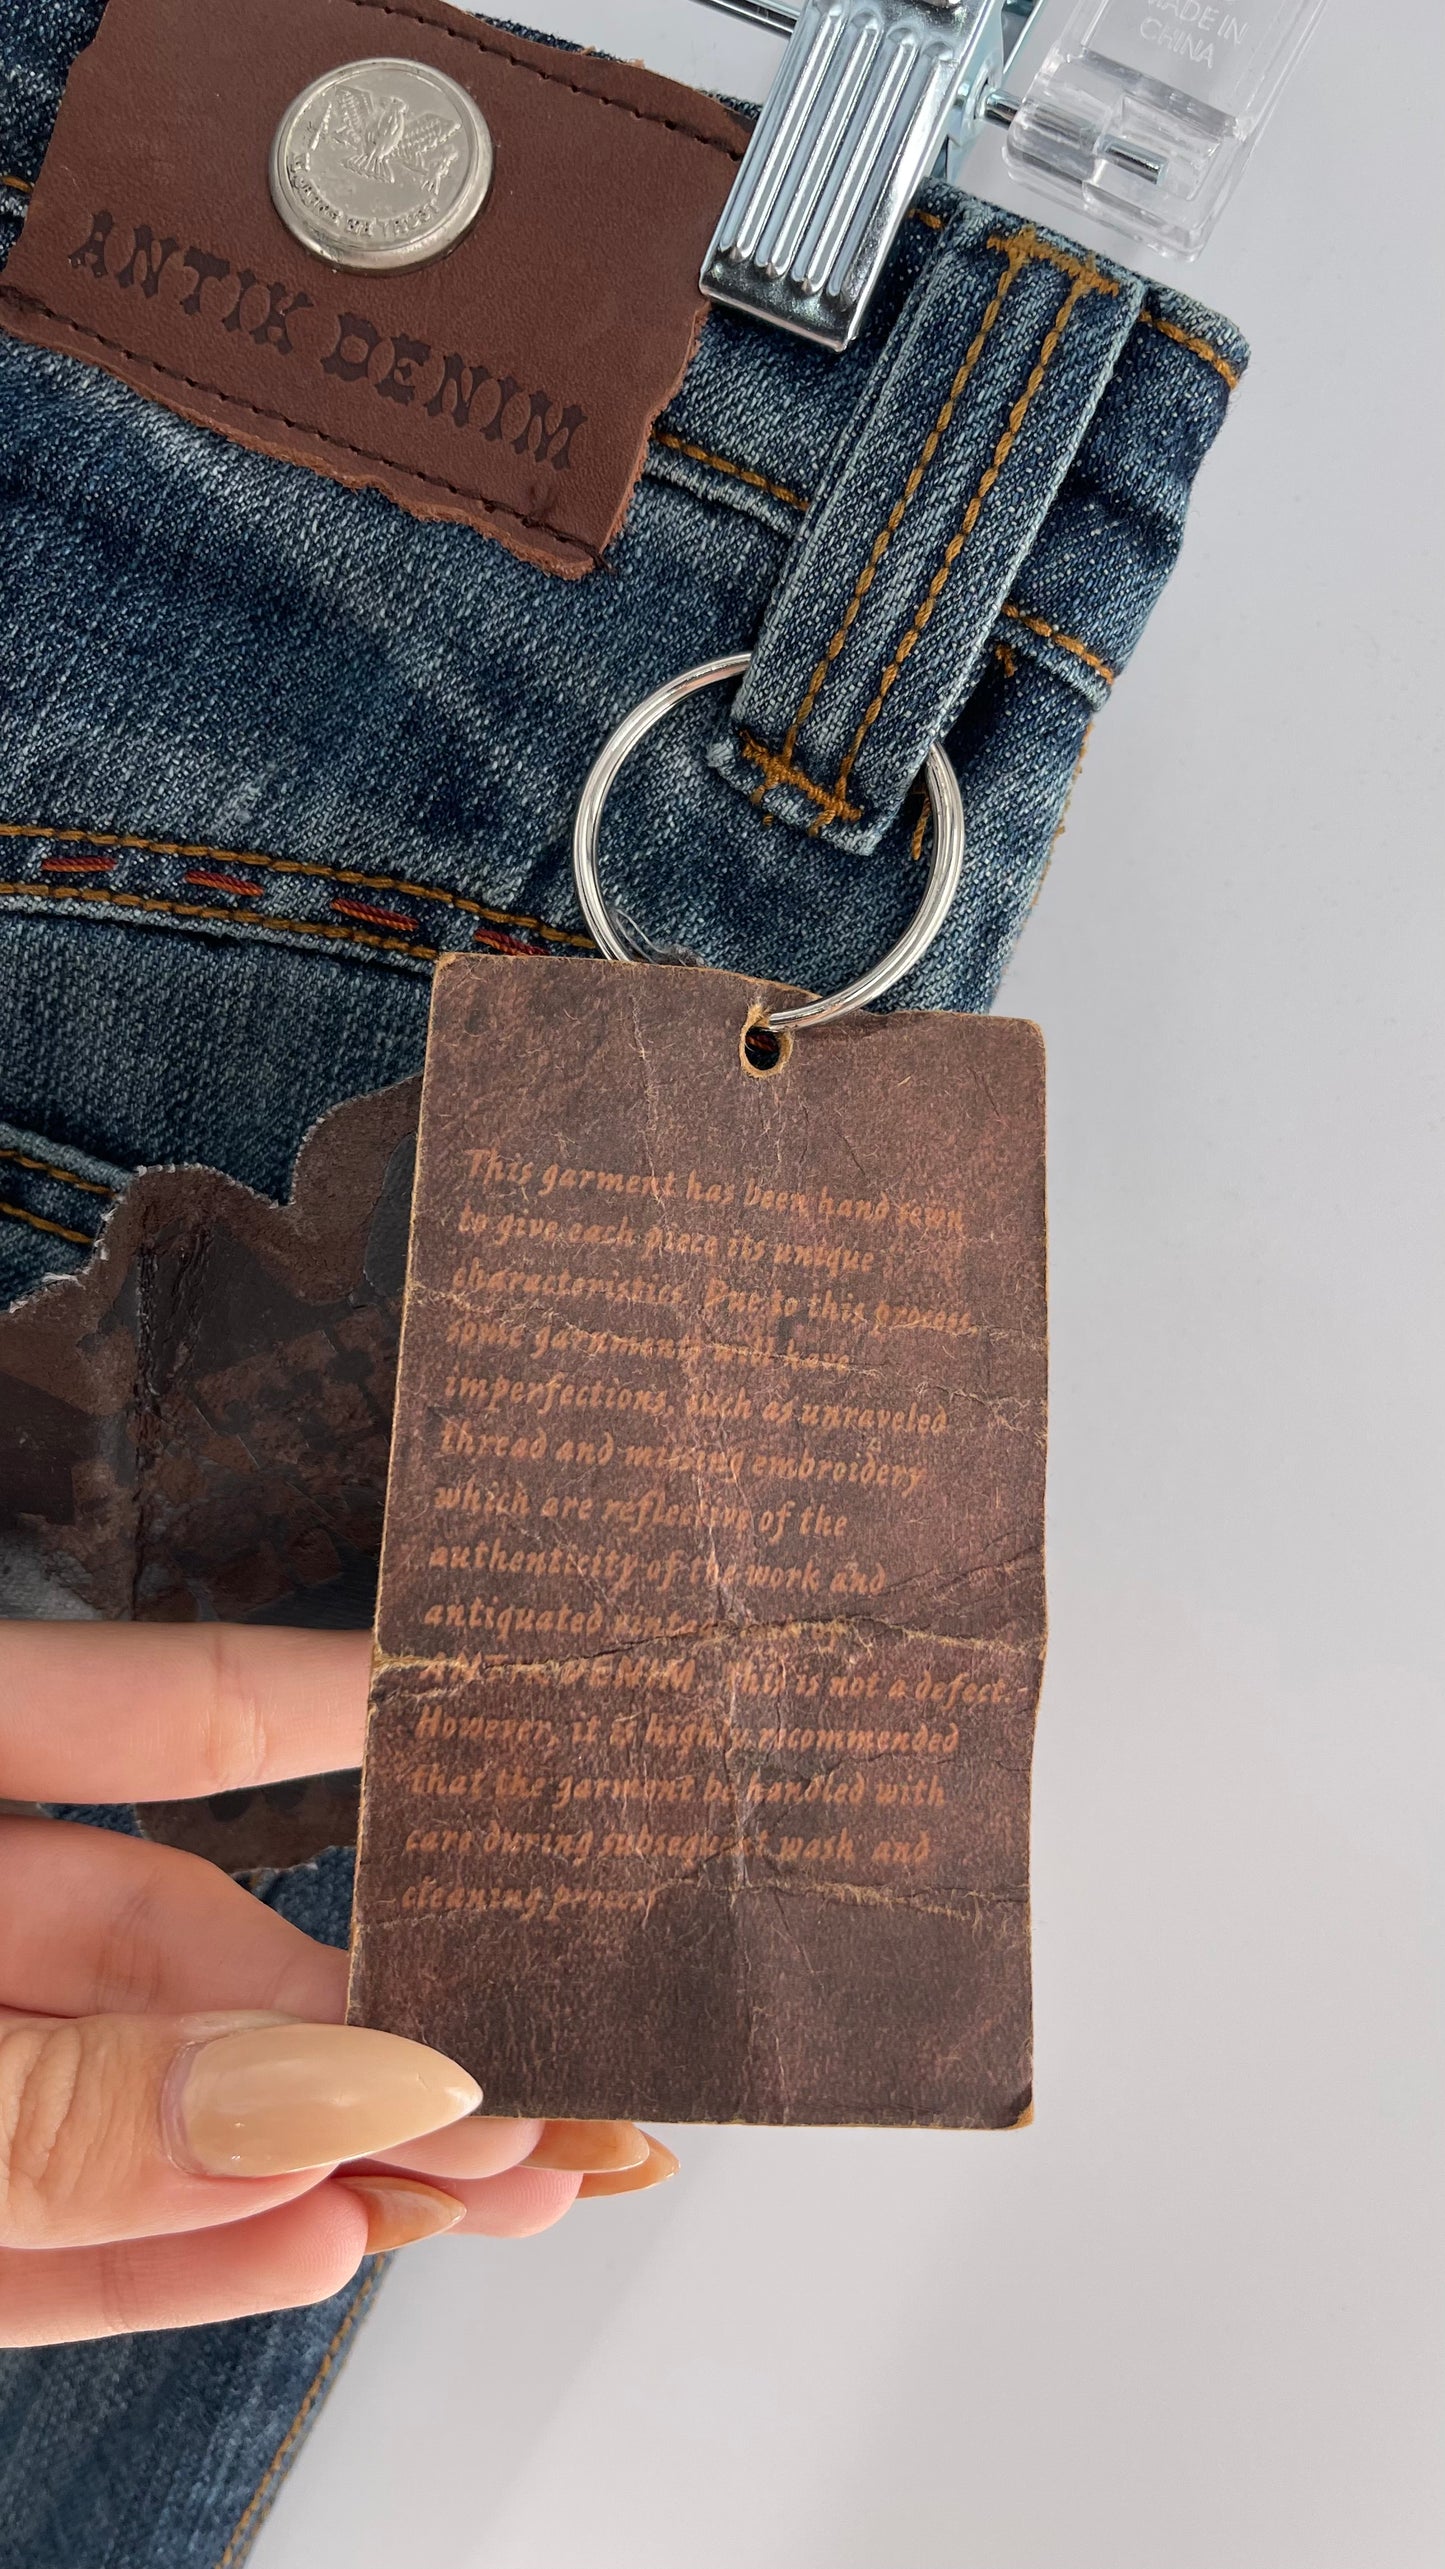 MADE IN
CHINA
WE TRUST
ANTIK DENIM
This garment has been hand sewn
to give each piece its unique
characteristics. Due to this process,
some garments will have
imperfections, such as unraveled
thread and missing embroidery
which are reflective of the
authenticity of the work and
antiquated vintage of
ANTIK DENIM. This is not a defect.
However, it is highly recommended
that the garment be handled with
care during subsequent wash and
cleaning process